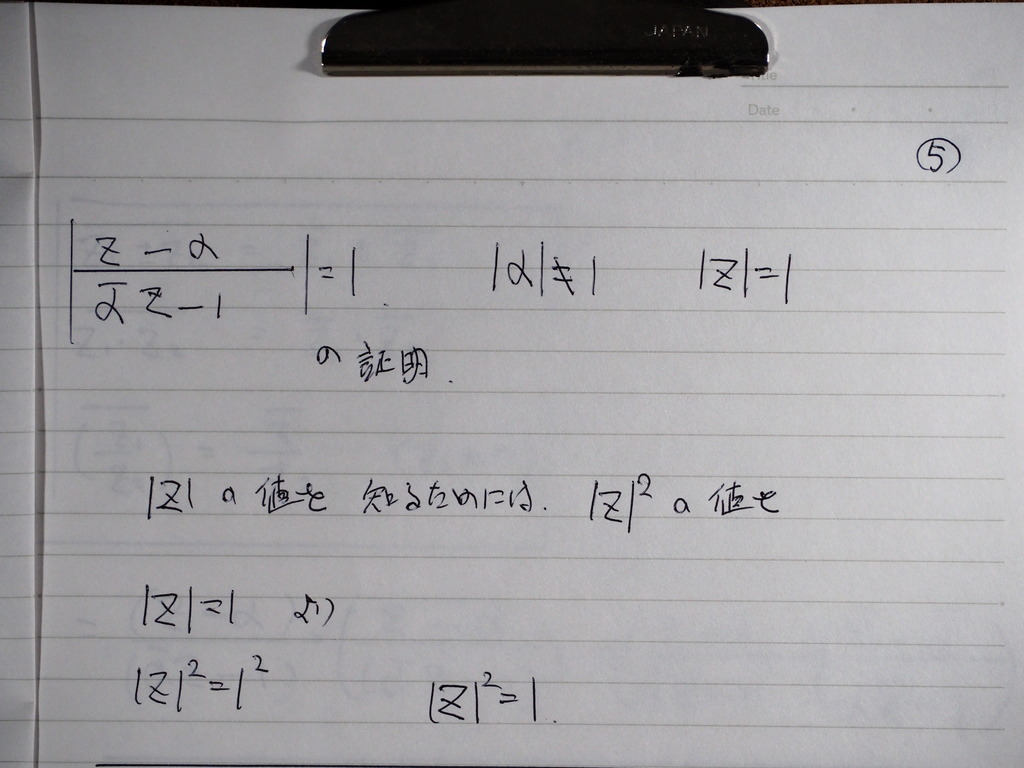 JAPAN
Title
Date
⑤
|z - α / ᾱz - 1| = 1. |α| ≠ 1 |z| = 1
の 証明.
|z| の 値を 知るためには. |z|² の 値を
|z| = 1 より
|z|² = 1² |z|² = 1.